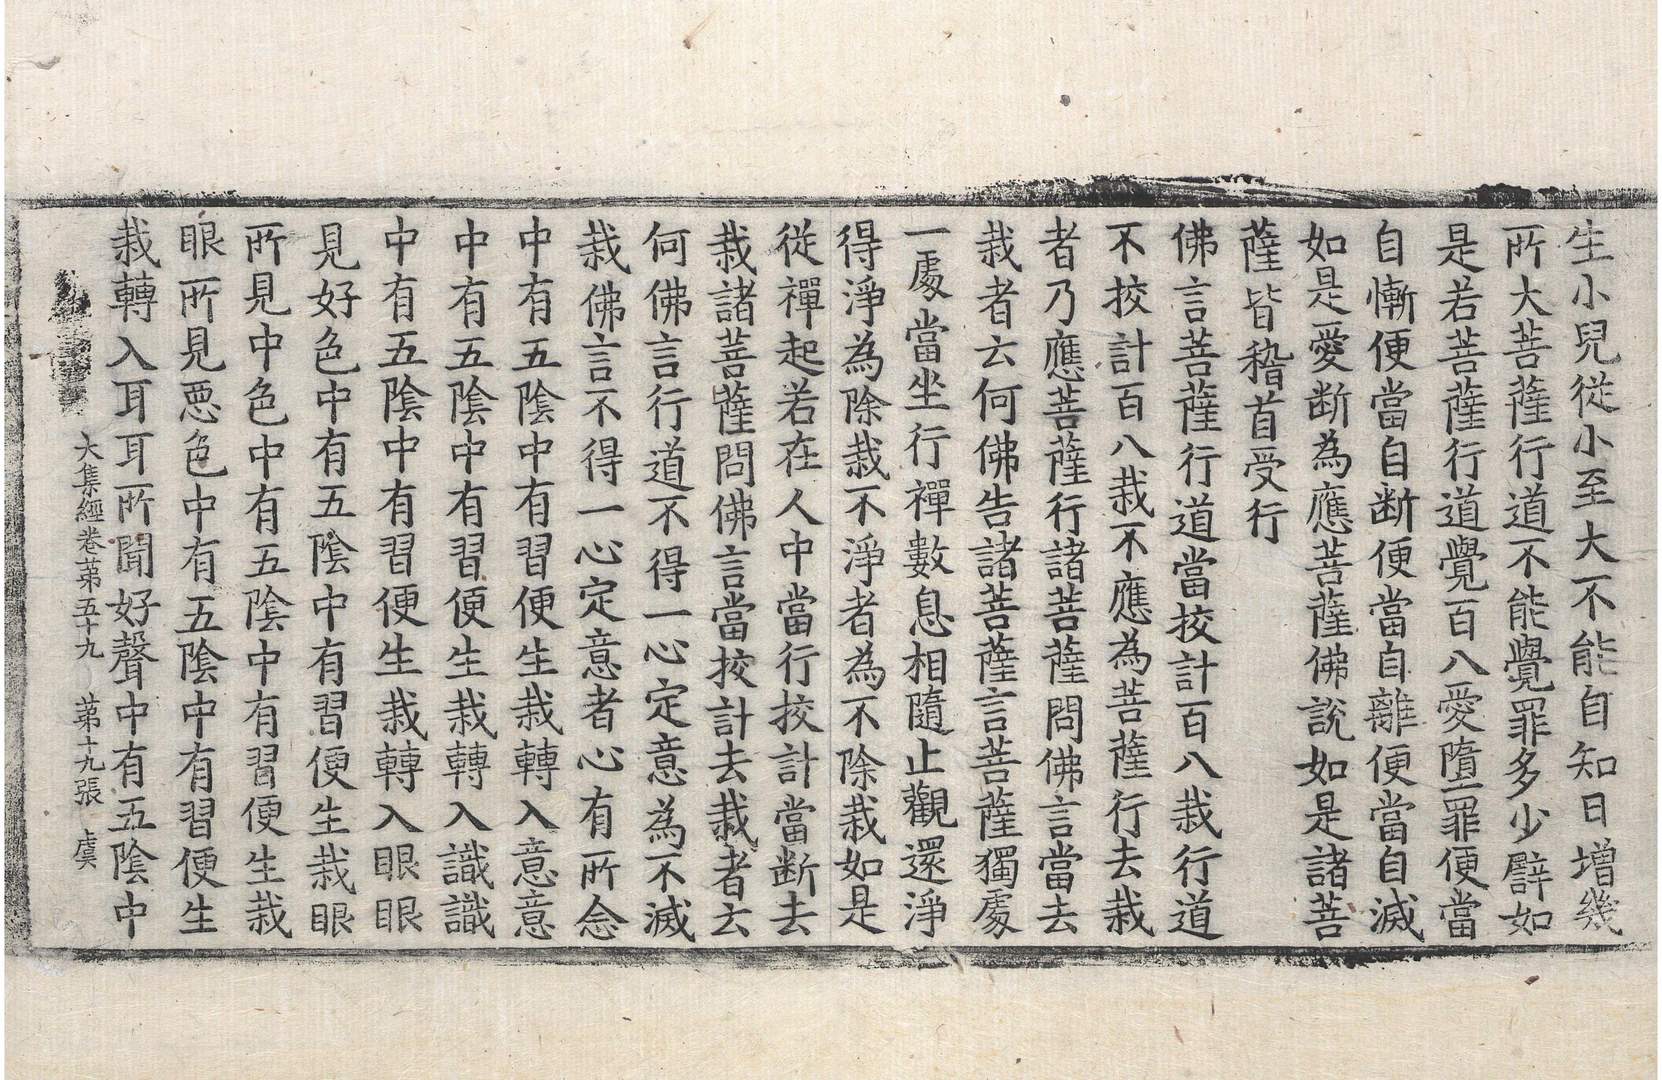 生小兒從小至大不能自知日增幾
所大菩薩行道不能覺罪多少譬如
是若菩薩行道覺百八愛墮罪便當
自慚便當自断便當自離便當自滅
如是愛断為應菩薩佛說如是諸菩
薩皆稽首受行
佛言菩薩行道當挍計百八栽行道
不挍計百八栽不應為菩薩行去栽
者乃應菩薩行諸菩薩問佛言當去
栽者云何佛告諸菩薩言菩薩獨處
一處當坐行禪數息相隨止觀還淨
得淨為除栽不淨者為不除栽如是
從禪起若在人中當行挍計當断去
栽諸菩薩問佛言當挍計去栽者云
何佛言行道不得一心定意為不滅
栽佛言不得一心定意者心有所念
中有五陰中有習便生栽轉入意意
中有五陰中有習便生栽轉入識識
中有五陰中有習便生栽轉入眼眼
見好色中有五陰中有習便生栽眼
所見中色中有五陰中有習便生栽
眼所見惡色中有五陰中有習便生
栽轉入耳耳所聞好聲中有五陰中
大集經卷苐五十九 苐十九張 虞